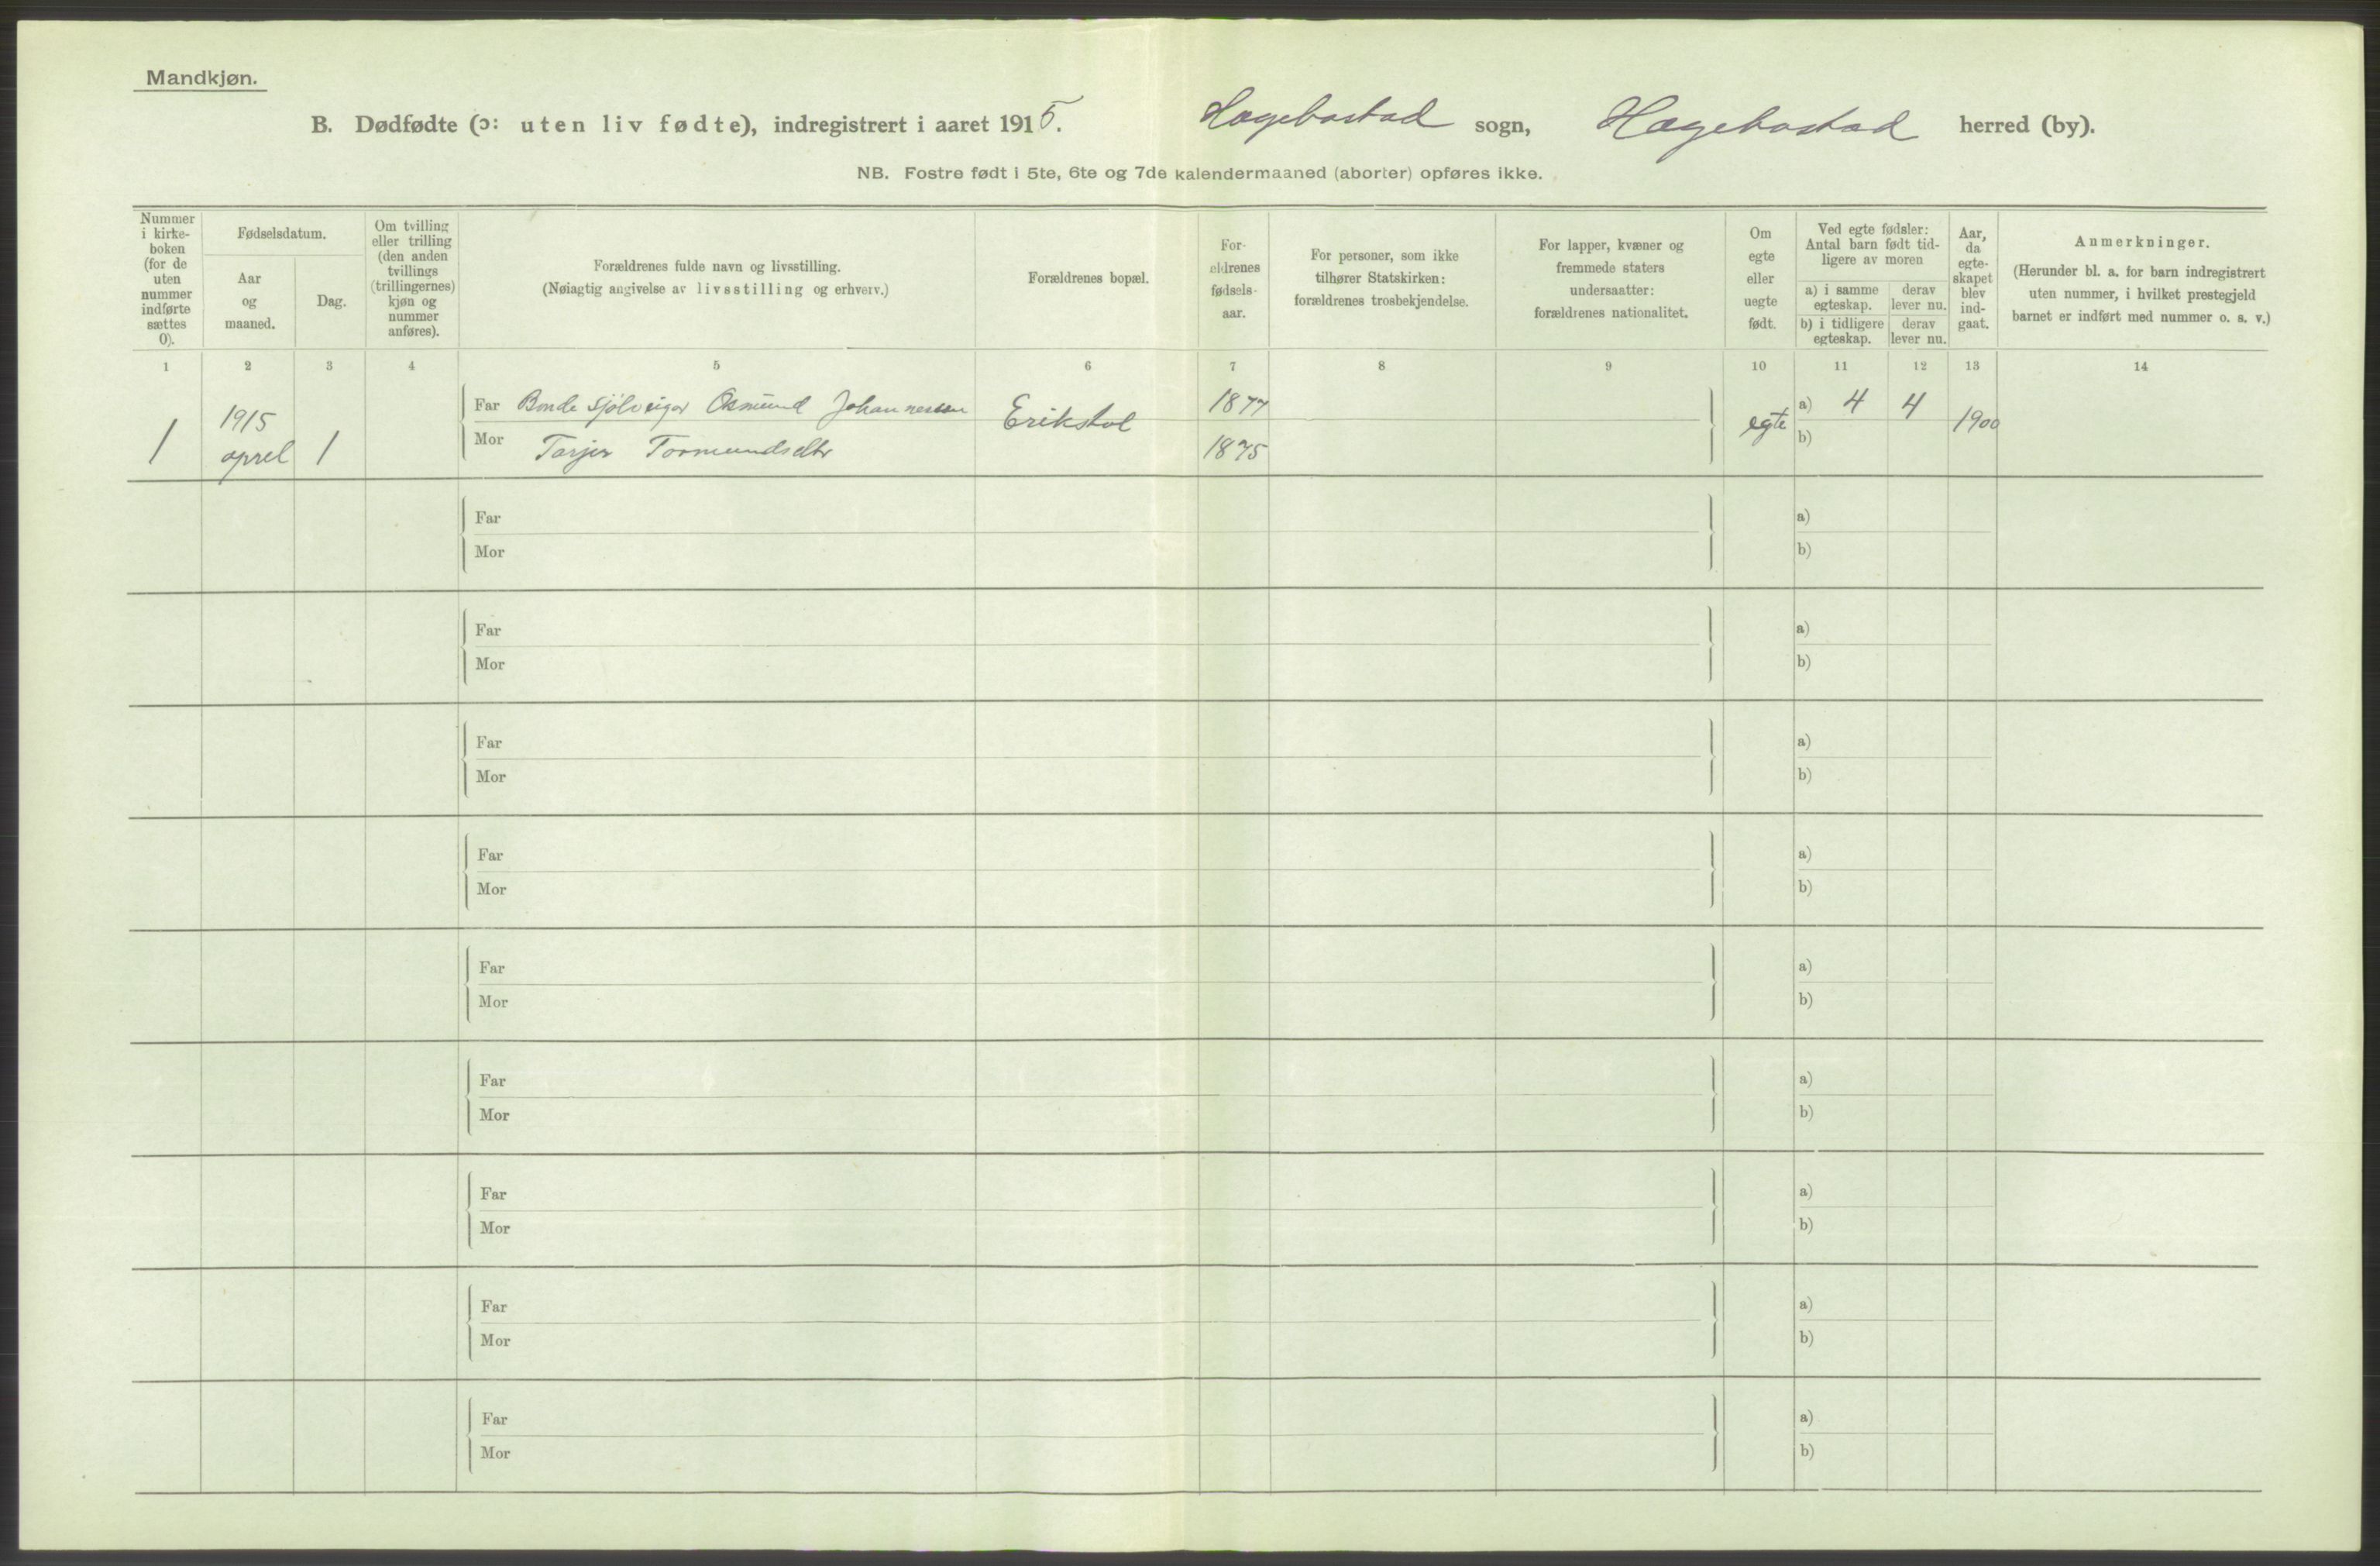 Mandkjøn.
B. Dødfødte (ɔ: uten liv fødte), indregistrert i aaret 1915. Hægebostad sogn, Hægebostad herred (by).
NB. Fostre født i 5te, 6te og 7de kalendermaaned (aborter) opføres ikke.
Nummer i kirke-boken (for de uten nummer indførte sættes 0).
Fødselsdatum.
Aar og maaned.
Dag.
Om tvilling eller trilling (den anden tvillings (trillingernes) kjøn og nummer anføres).
Forældrenes fulde navn og livsstilling.
(Nøiagtig angivelse av livsstilling og erhverv.)
Forældrenes bopæl.
For-ældrenes fødsels-aar.
For personer, som ikke tilhører Statskirken: forældrenes trosbekjendelse.
For lapper, kvæner og fremmede staters undersaatter: forældrenes nationalitet.
Om egte eller uegte født.
Ved egte fødsler: Antal barn født tid-ligere av moren
a) i samme egteskap.
derav lever nu.
b) i tidligere egteskap.
derav lever nu.
Aar, da egte-skapet blev ind-gaat.
Anmerkninger.
(Herunder bl. a. for barn indregistrert uten nummer, i hvilket prestegjeld barnet er indført med nummer o. s. v.)
1 2 3 4 5 6 7 8 9 10 11 12 13 14
1 1915 aprel 1
Far Bonde sjølveiger Osmund Johannessen Erikstol 1877 egte a) 4 4 1900
Mor Tarjer Tormundsdtr 1875 b)
Far a)
Mor b)
Far a)
Mor b)
Far a)
Mor b)
Far a)
Mor b)
Far a)
Mor b)
Far a)
Mor b)
Far a)
Mor b)
Far a)
Mor b)
Far a)
Mor b)